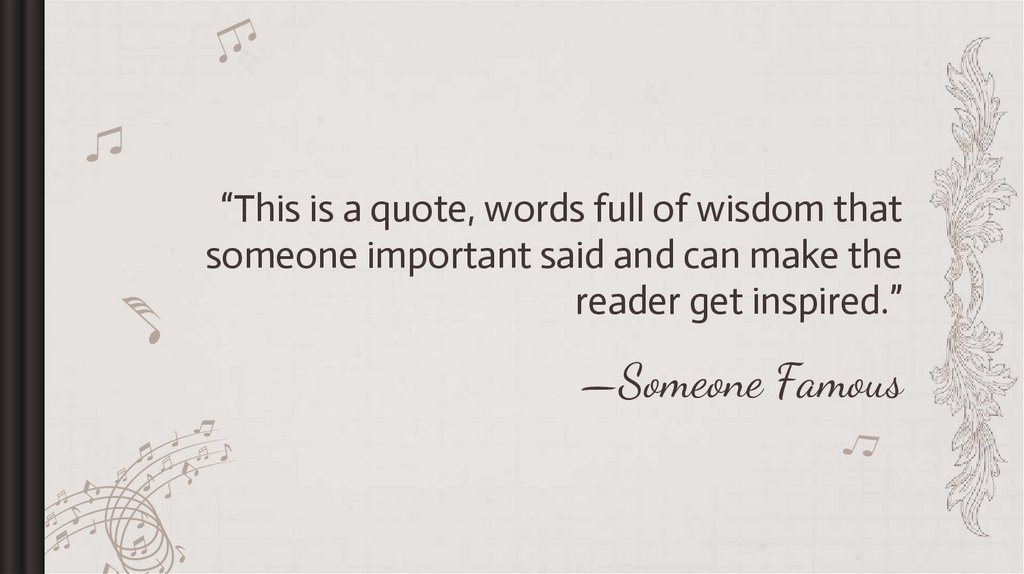 “This is a quote, words full of wisdom that
someone important said and can make the
reader get inspired.”
—Someone Famous